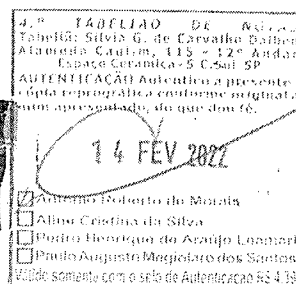 4.º TABELIÃO DE NOTAS
Tabeliã: Silvia G. de Carvalho Dalben
Alameda Caulim, 115 - 12º Andar
Espaço Cerâmica - S C.Sul SP
AUTENTICAÇÃO Autentico a presente
cópia reprográfica conforme original a
mim apresentado, do que dou fé.
14 FEV 2022
Antonio Roberto de Morais
Aline Cristina da Silva
Pedro Henrique de Araújo
Paulo Augusto Megiolaro dos Santos
Válido somente com o selo de Autenticacao R$ 4,39